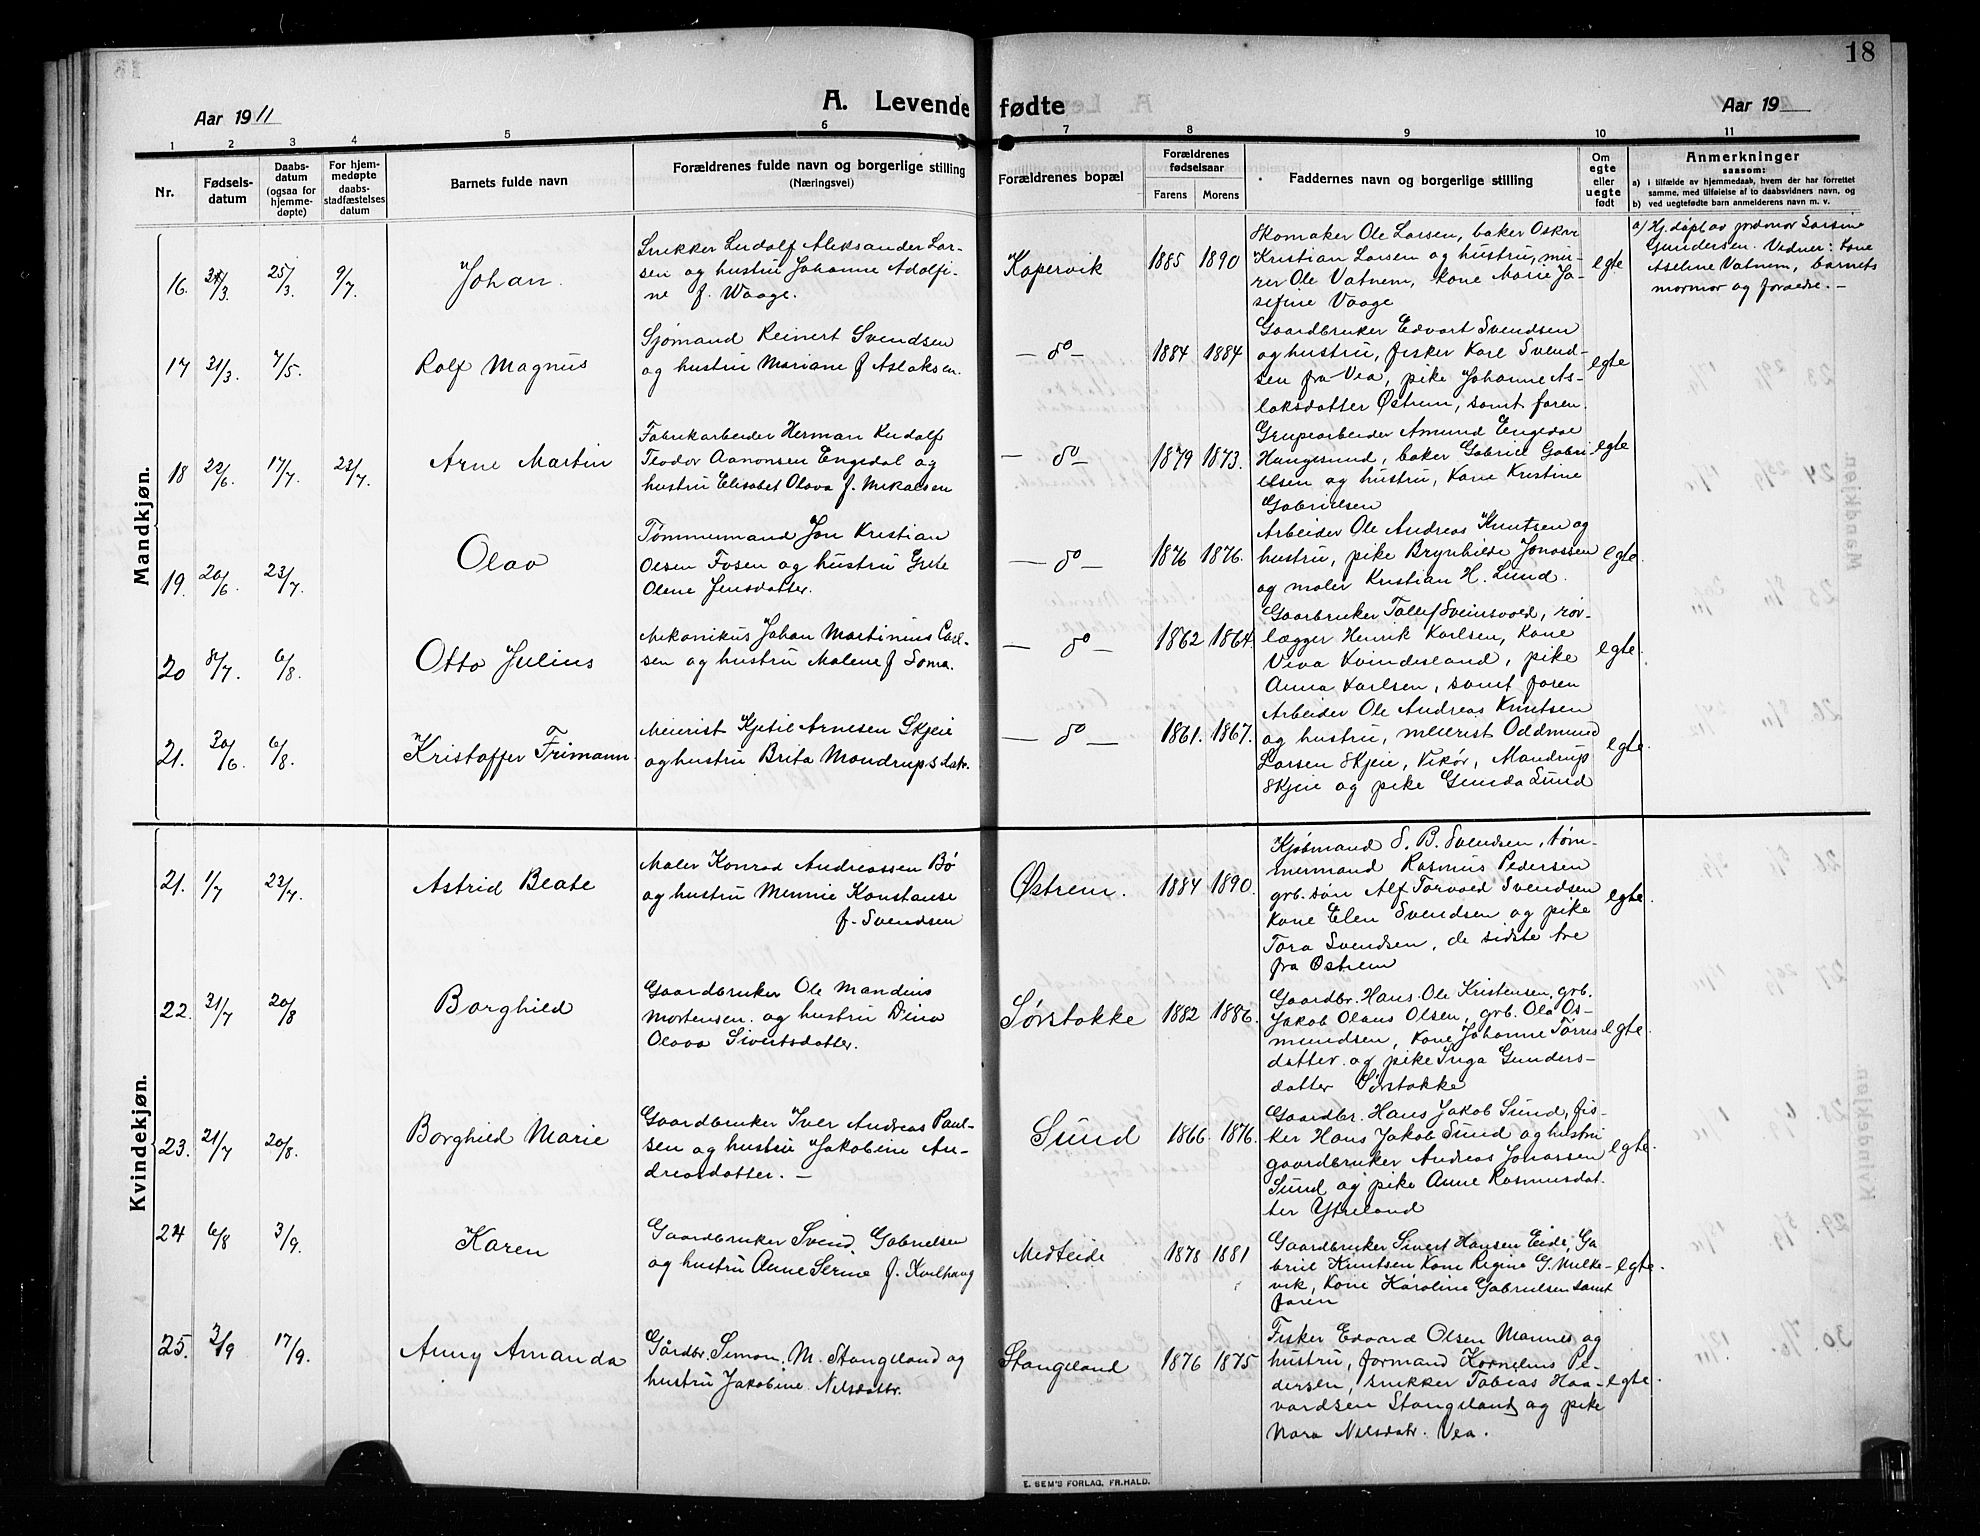 18
A. Levende fødte
Aar 1911
Aar 19
1 2 3 4 5 6 7 8 9 10 11
Nr.
Fødsels-
datum
Daabs-
datum
(ogsaa for
hjemme-
døpte)
For hjem-
medøpte
daabs-
stadfæstelses
datum
Barnets fulde navn
Forældrenes fulde navn og borgerlige stilling
(Næringsvei)
Forældrenes bopæl
Forældrenes
fødselsaar
Farens Morens
Faddernes navn og borgerlige stilling
Om
egte
eller
uegte
født
Anmerkninger
saasom:
a) i tilfælde av hjemmedaab, hvem der har forrettet
samme, med tilføielse af to daabsvidners navn, og
b) ved uegtefødte barn anmelderens navn m. v.
Mandkjøn.
16. 24/3. 25/3. 9/7.
Johan.
Snikker Ludolf Aleksander Lar-
sen og hustru Johanne Adolfi-
ne f. Waage.
Kopervik
1885 1890
Skomaker Ole Larsen, baker Oskar
Kristian Larsen og hustru, mu-
rer Ole Vatnem, kone Marie Jo-
sefine Vaage
egte
a) Hj. døpt av jordmor Sarsine
Gundersen. Vidner: Kone
Aseline Vatnem, barnets
mormor og foraeldre. —
17 31/3. 7/5.
Rolf Magnus
Sjømand Reinert Svendsen
og hustru Mariane f Aslaksen.
— do —
1884 1884
Gaardbruker Edvart Svendsen
og hustru, fisker Karl Svend-
sen fra Vea, pike Johanne As-
laksdatter Østrem, samt faren.
egte
18 22/6. 17/7. 23/7.
Arne Martin
Fabrikarbeider Herman Ludolf
Teodor Aanonsen Engedal og
hustru Elisabet Olava f. Mikalsen
— do —
1879 1873.
Grupearbeider Amund Engedal
Haugesund, baker Gabriel Gabri
elsen og hustru, Kone Kristine
Gabrielsen
egte
19. 20/6 23/7.
Olav
Tømmermand Jon Kristian
Olsen Fosen og hustru Grete
Olene Jensdatter.
— do —
1876 1876.
Arbeider Ole Andreas Knutsen og
hustru, pike Brynhilde Jonassen
og maler Kristian H. Lund.
egte.
20 8/7. 6/8.
Otto Julius
Mekanikus Johan Martinius Carl-
sen og hustru Malene f Soma.
— do —
1862 1864.
Gaarbruker Tollef Sveinsvold, rør-
lægger Henrik Karlsen, Kone
Viva Kvindesland, pike
Anna Karlsen, samt faren
egte.
21. 30/6. 6/8.
Kristoffer Frimann
Meierist Kjetil Arnesen Skjeie
og hustru Brita Mandrupsdatr.
— do —
1861. 1867.
Arbeider Ole Andreas Knutsen
og hustru, meierist Oddmund
Larsen Skjeie, Vikør, Mandrup
Skjeie og pike Gunda Lund
egte.
Kvindekjøn.
21. 1/7 23/7.
Astrid Beate
Maler Konrad Andreassen Bø
og hustru Mennie Konstanse
f. Svendsen
Østrem.
1884 1890.
Kjøbmand S. B. Svendsen, tøm-
mermand Rasmus Pedersen
grb. søn Alf Torvald Svendsen
Kone Elen Svendsen og pike
Tora Svendsen, de sidste tre
fra Østrem
egte.
22. 31/7 20/8
Borghild
Gaardbruker Ole Mandius
Mortensen og hustru Dina
Olava Sivertsdatter.
Sørstokke
1882 1886.
Gaardbr. Hans Ole Kristensen, grb.
Jakob Olaus Olsen, grb. Ola Os-
mundsen, Kone Johanne Tørres
datter og pike Inga Gunders-
datter Sørstokke
egte.
23. 21/7 20/8.
Borghild Marie
Gaardbruker Iver Andreas Paul-
sen og hustru Jakobine An-
dreasdatter. —
Sund
1866. 1876.
Gaardbr. Hans Jakob Sund, fis-
ker Hans Jakob Sund og hustru
gaardbruker Andreas Jonassen
Sund og pike Anne Rasmusdat.
ter Ytreland
egte.
24 6/8 3/9.
Karen
Gaardbruker Svend Gabrielsen
og hustru Anne Serine f. Kvilhaug
Medteide
1878 1881
Gaardbruker Sivert Hansen Eide, Ga
briel Knutsen Kone Regine G. Milke-
vik, Kone Karoline Gabrielsen samt
faren
egte.
25. 3/9 17/9.
Anny Amanda
Gårdbr. Simon. M. Stangeland og
hustru Jakobine Nilsdattr.
Stangeland
1876 1875
Fisker Edvard Olsen Mannes og
hustru, formand Kornelius Pe-
dersen, snikker Tobias Haa-
vardsen Stangeland og pike
Nara Nilsdatr. Vea.
egte.
E. SEM'S FORLAG, FR.HALD.